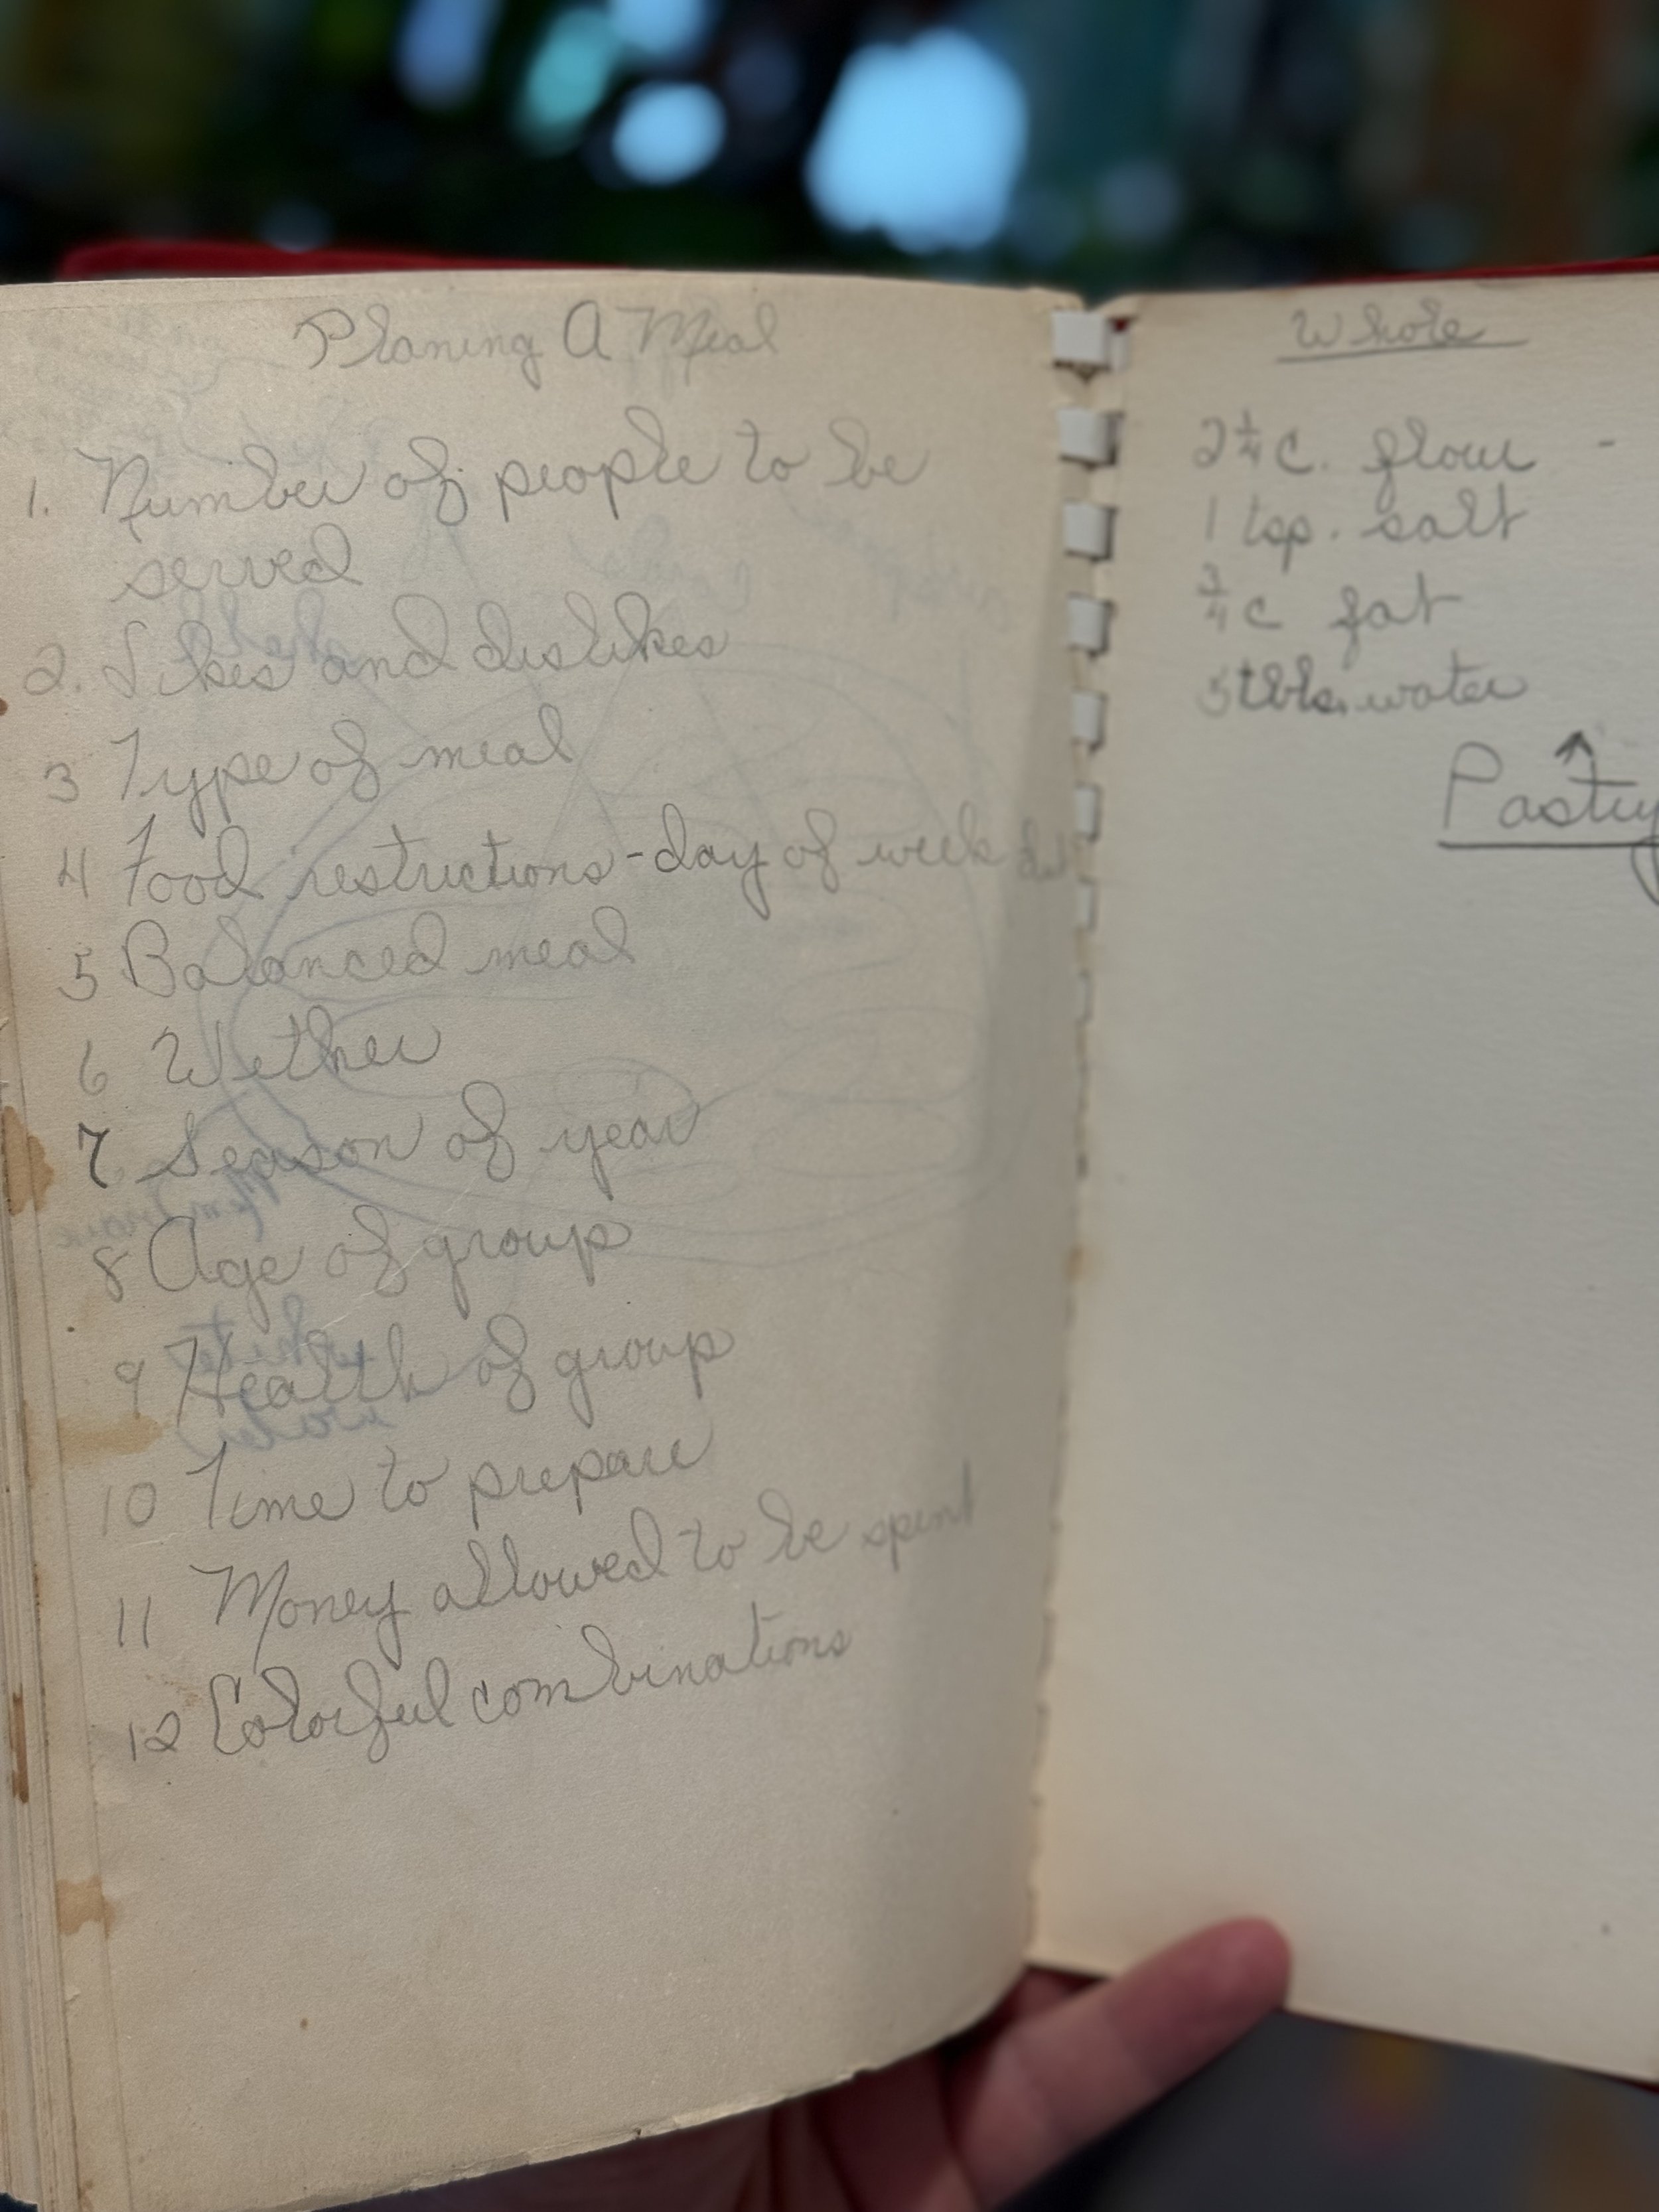 Planing A Meal
1. Number of people to be
served
2. Likes and dislikes
3 Type of meal
4 Food restrictions - day of week
5 Balanced meal
6 Wether
7 Season of year
8 Age of group
9 Health of group
10 Time to prepare
11 Money allowed to be spent
12 Colorful combinations
Whole
2 1/4 c. flour -
1 tsp. salt
3/4 c fat
5 tbls. water
↑
Pastry